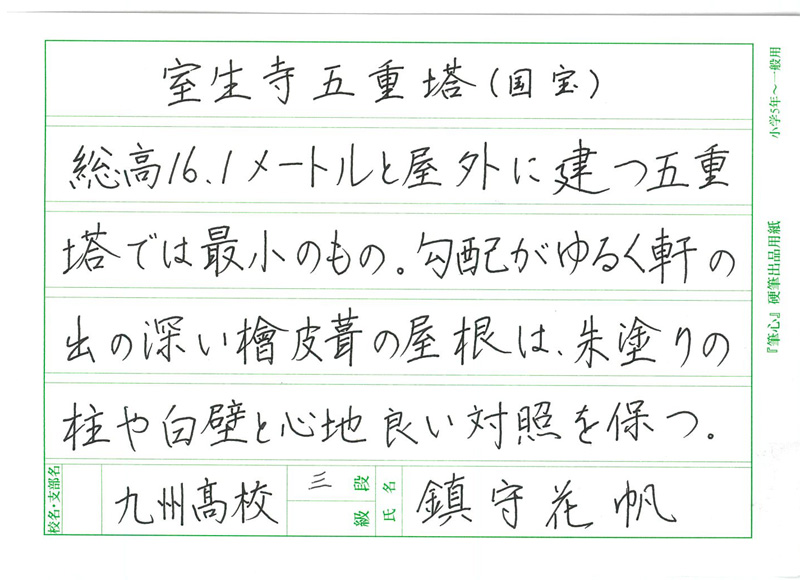 室生寺五重塔(国宝)
総高16.1メートルと屋外に建つ五重
塔では最小のもの。勾配がゆるく軒の
出の深い檜皮葺の屋根は、朱塗りの
柱や白壁と心地良い対照を保つ。
校名・支部名 九州高校 三 段 級 氏名 鎮守花帆
小学5年〜一般用
『筆心』硬筆出品用紙